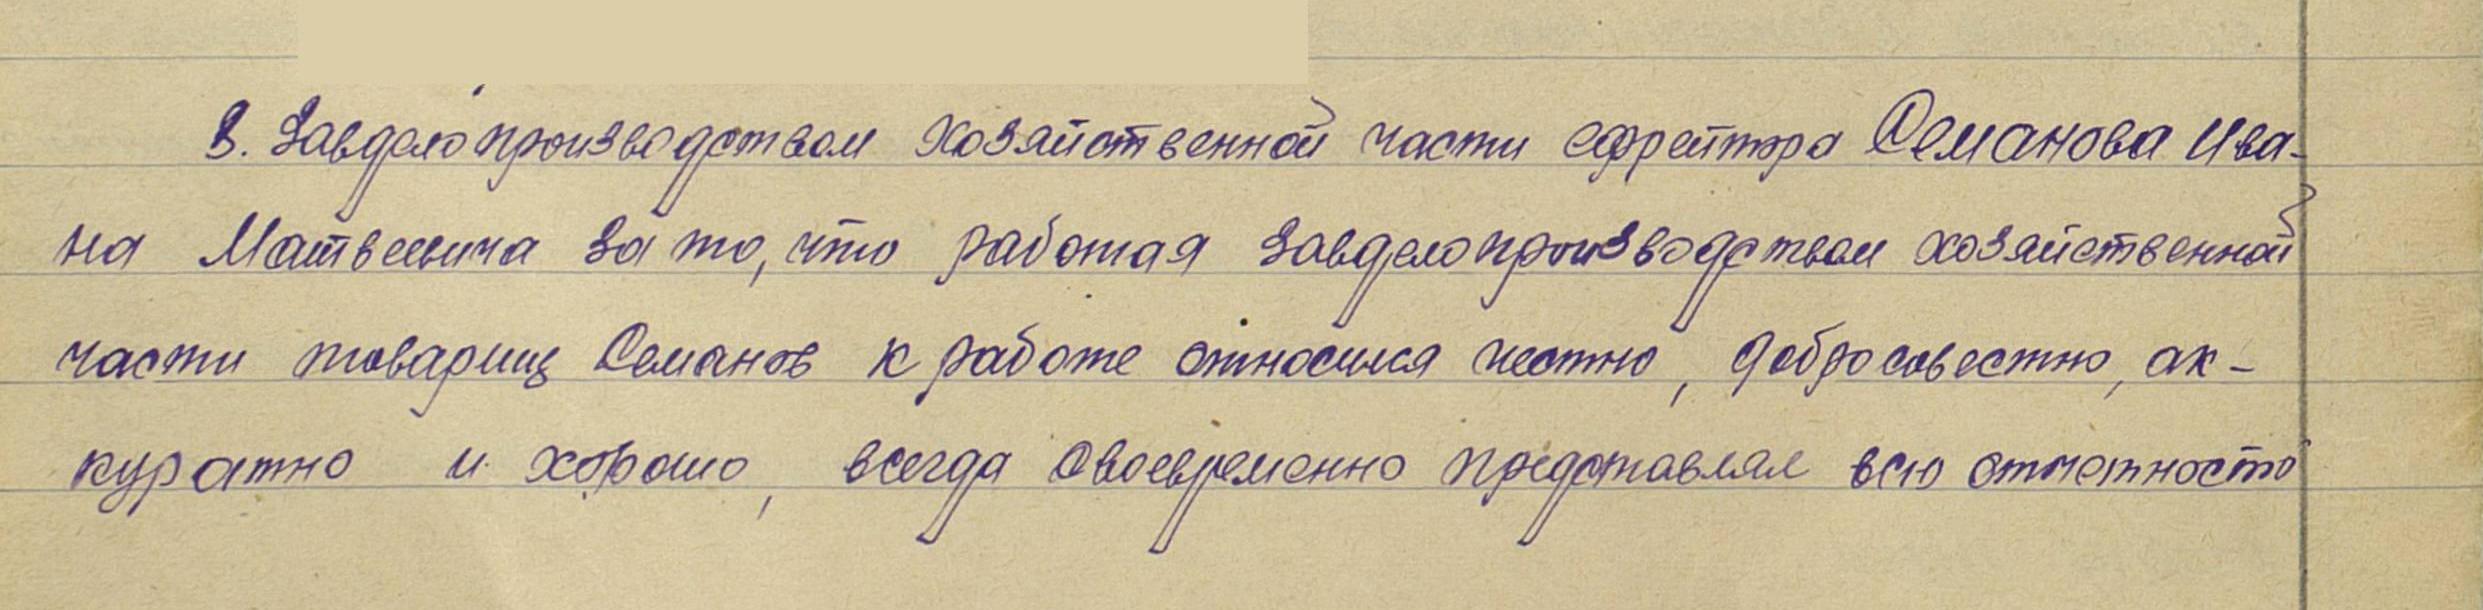 3. Завделопроизводством хозяйственной части ефрейтора Семанова Ива-
на Матвеевича за то, что работая завделопроизводством хозяйственной
части товарищ Семанов к работе относился честно, добросовестно, ак-
куратно и хорошо, всегда своевременно представлял всю отчетность